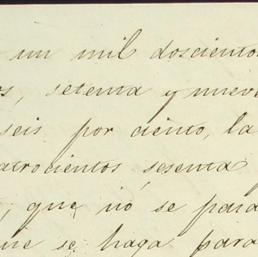 un mil doscientos
os, setenta y nueve
seis por ciento, la
atrocientos sesenta
, que no se para
que se haga para